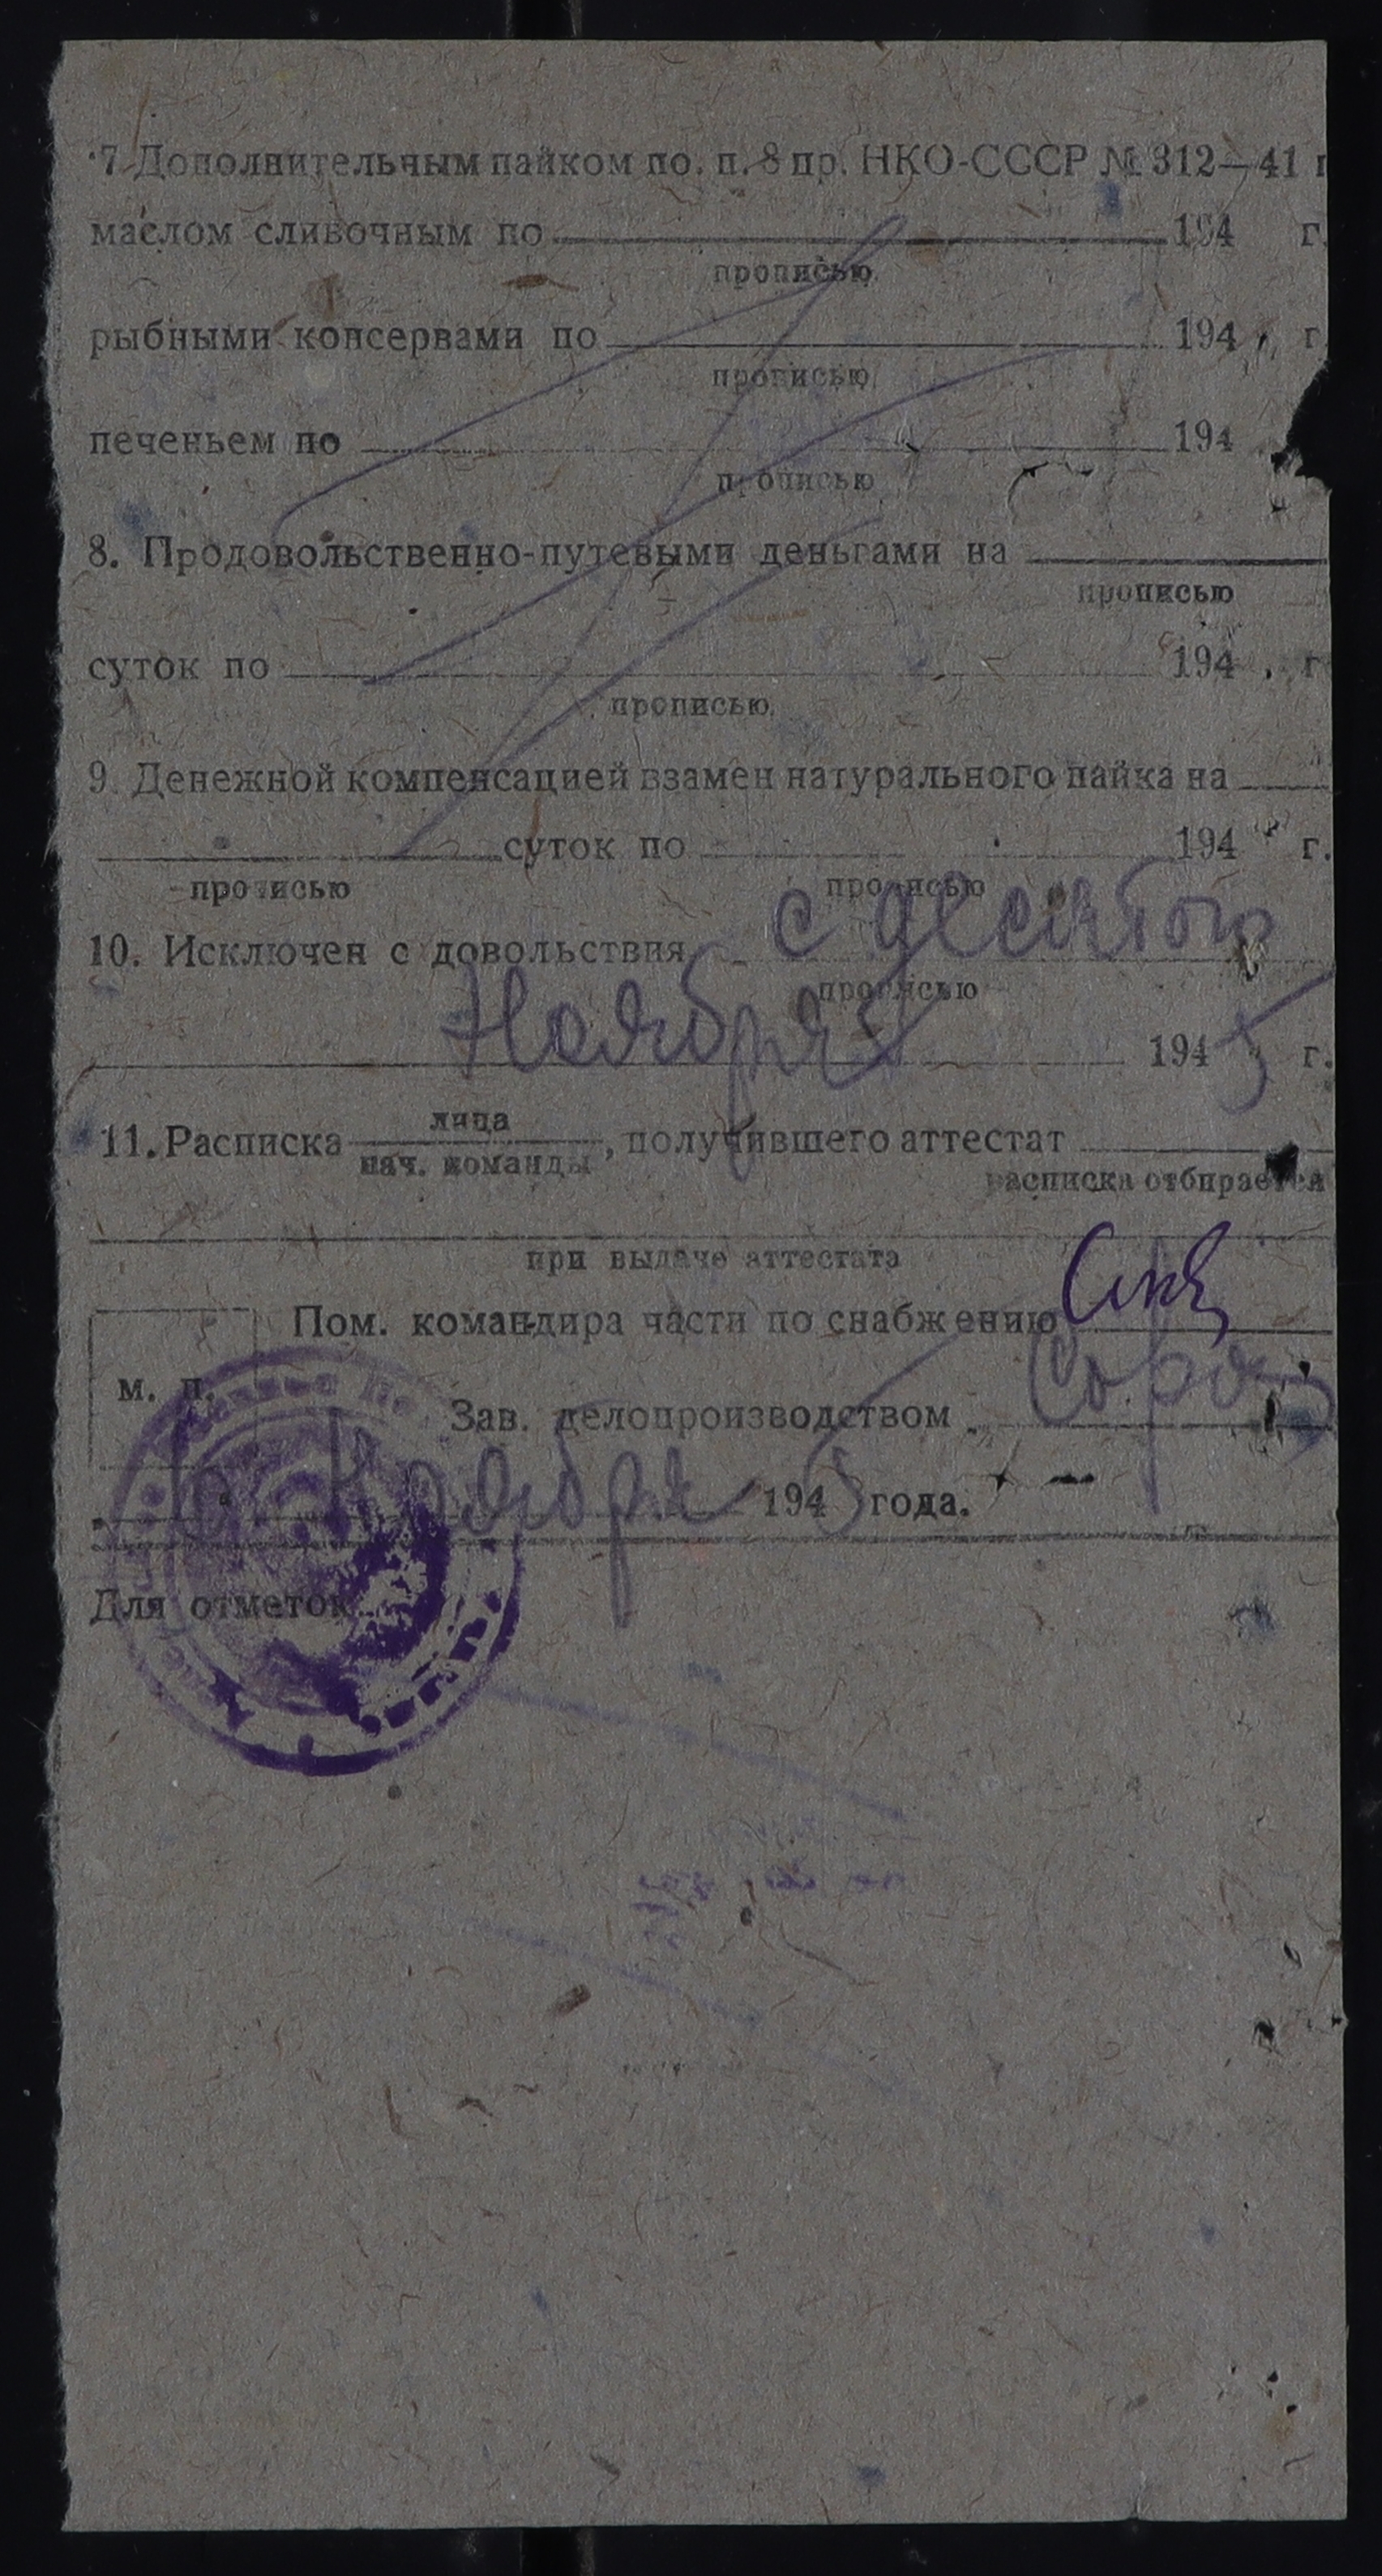 7 Дополнительным пайком по. п. 8 пр. НКО-СССР № 312—41 г
маслом сливочным по 194 г.
прописью
рыбными консервами по 194 г
прописью
печеньем по 194
прописью
8. Продовольственно-путевыми деньгами на
прописью
суток по 194 г
прописью
9. Денежной компенсацией взамен натурального пайка на
суток по 194 г.
прописью прописью
10. Исключен с довольствия с десятого
прописью
Ноября 1945 г.
11. Расписка лица
нач. команды, получившего аттестат
расписка отбирается
при выдаче аттестата
Пом. командира части по снабжению
м. п.
Зав. делопроизводством
Ноября 1945 года.
Для отметок